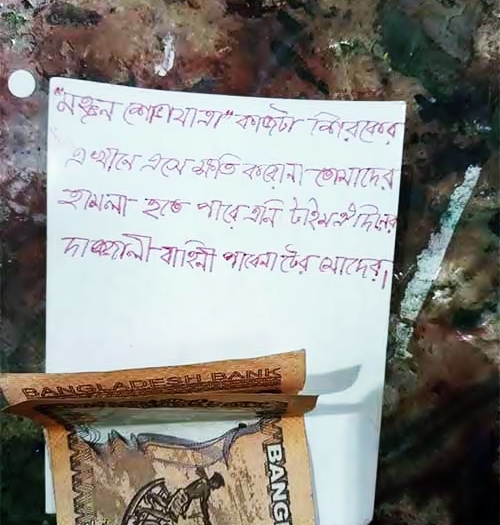 "মঙ্গল শোভাযাত্রা" কাজটা শিরকের
এখানে এসে ক্ষতি করোনা তোমাদের
হামলা হতে পারে এনি টাইম ঐ দিনের
দাজ্জালী বাহিনী পাবেনা টের মোদের।
BANGLADESH BANK
BANG